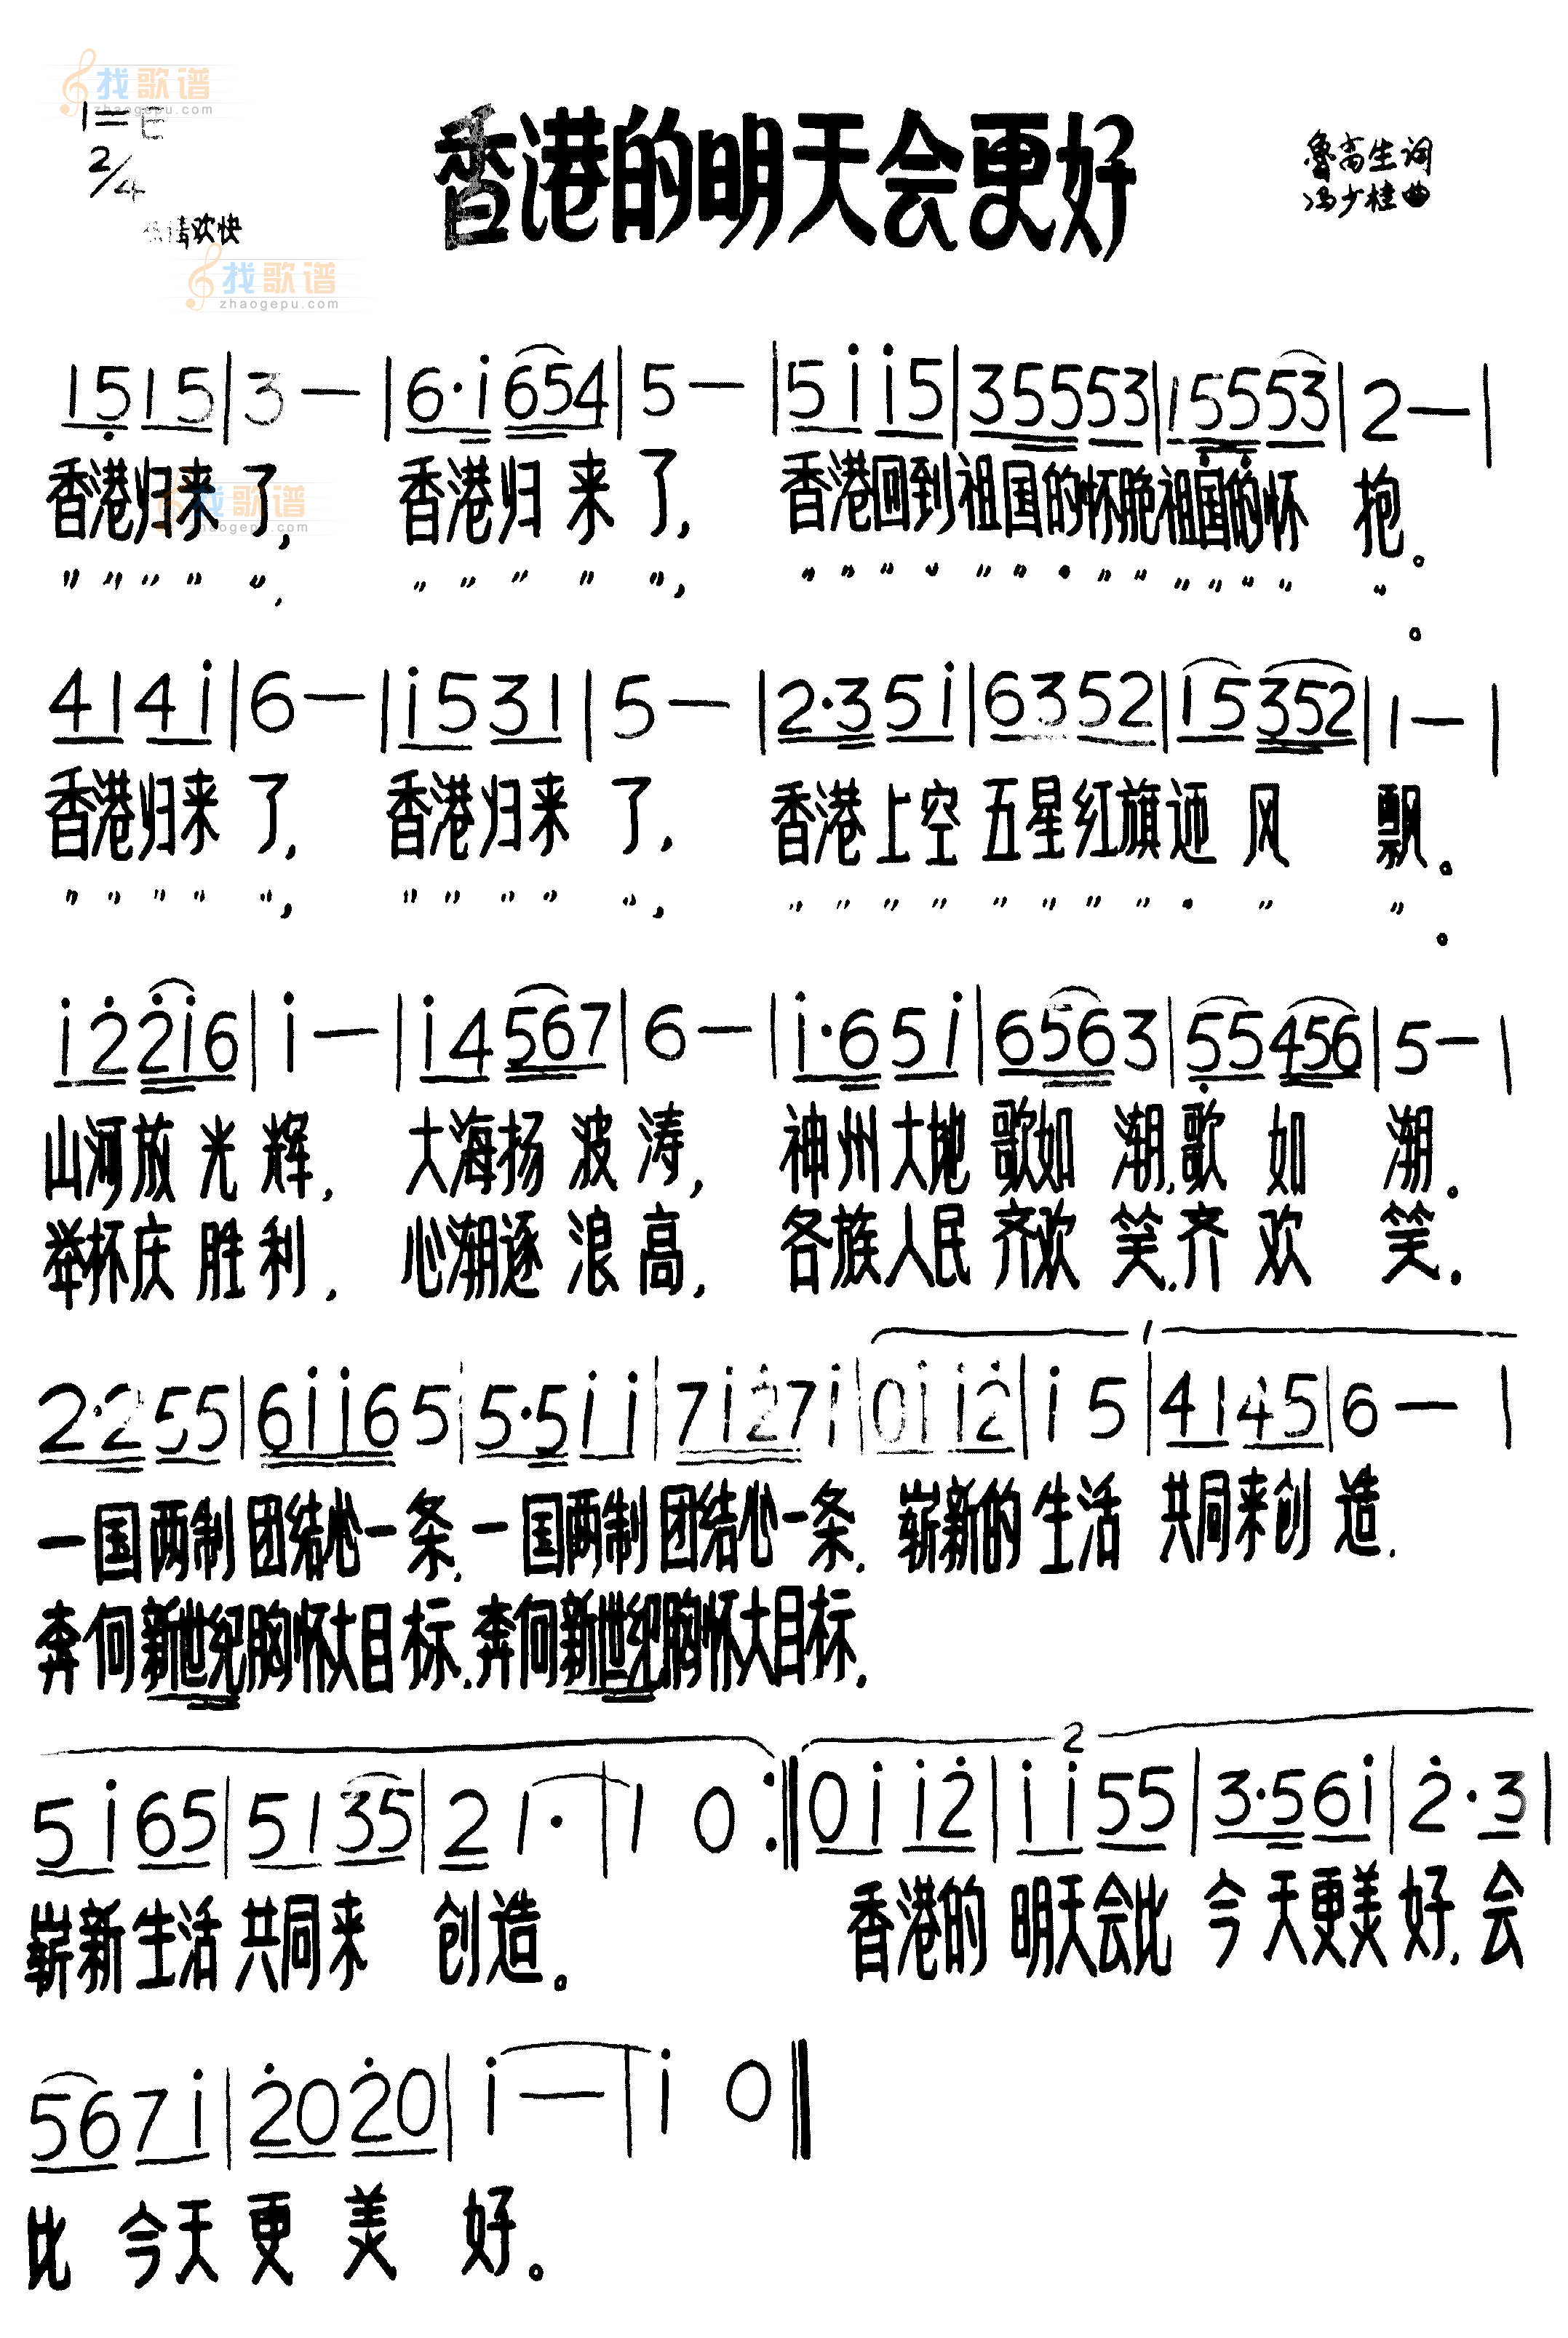 找歌谱
zhaogepu.com
1=E
2/4
热情欢快
香港的明天会更好
鲁高生词
冯少桂曲
找歌谱
zhaogepu.com
1 5̣ 1 5 | 3 — | 6·i 6 5 4 | 5 — | 5 i i 5 | 3 5 5 5 3 | 1 5̣ 5̣ 5 3 | 2 — |
香港归来了, 香港归来了, 香港回到祖国的怀抱祖国的怀抱。
找歌谱
zhaogepu.com
〃〃〃〃〃, 〃〃〃〃〃, 〃〃〃〃〃〃〃〃〃〃〃〃〃〃。
4 1 4 i | 6 — | i 5 3 1 | 5 — | 2·3 5 i | 6 3 5 2 | 1 5 3 5 2 | 1 — |
香港归来了, 香港归来了, 香港上空五星红旗迎风飘。
〃〃〃〃〃, 〃〃〃〃〃, 〃〃〃〃〃〃〃〃〃〃〃。
i 2̇ 2̇ i 6 | i — | i 4 5 6 7 | 6 — | i·6 5 i | 6 5 6 3 | 5̣ 5 4 5 6 | 5 — |
山河放光辉, 大海扬波涛, 神州大地歌如潮,歌如潮.
举杯庆胜利, 心潮逐浪高, 各族人民齐欢笑,齐欢笑.
1
2·2 5 5 | 6 i i 6 5 | 5·5 i i | 7 i 2̇ 7 i | 0 i i 2̇ | i 5 | 4 1 4 5 | 6 — |
一国两制团结心一条,一国两制团结心一条, 崭新的生活共同来创造.
奔向新世纪胸怀大目标,奔向新世纪胸怀大目标,
2
5 i 6 5 | 5 1 3 5 | 2 1· | 1 0 :‖ 0 i i 2̇ | i i 5 5 | 3·5 6 i | 2̇·3 |
崭新生活共同来创造。 香港的明天会比今天更美好,会
5 6 7 i | 2̇ 0 2̇ 0 | i — | i 0 ‖
比今天更美好。